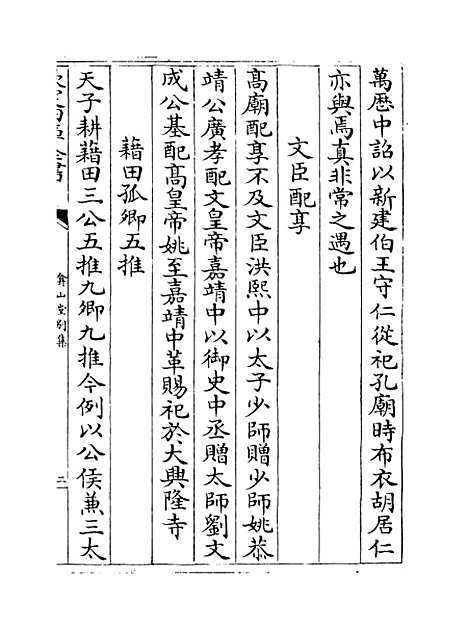 萬歴中詔以新建伯王守仁從祀孔廟時布衣胡居仁
亦與焉真非常之遇也
文臣配享
髙廟配享不及文臣洪熙中以太子少師贈少師姚恭
靖公廣孝配文皇帝嘉靖中以御史中丞贈太師劉文
成公基配髙皇帝姚至嘉靖中革賜祀於大興隆寺
藉田孤卿五推
天子耕藉田三公五推九卿九推今例以公侯兼三太
弇山堂别集